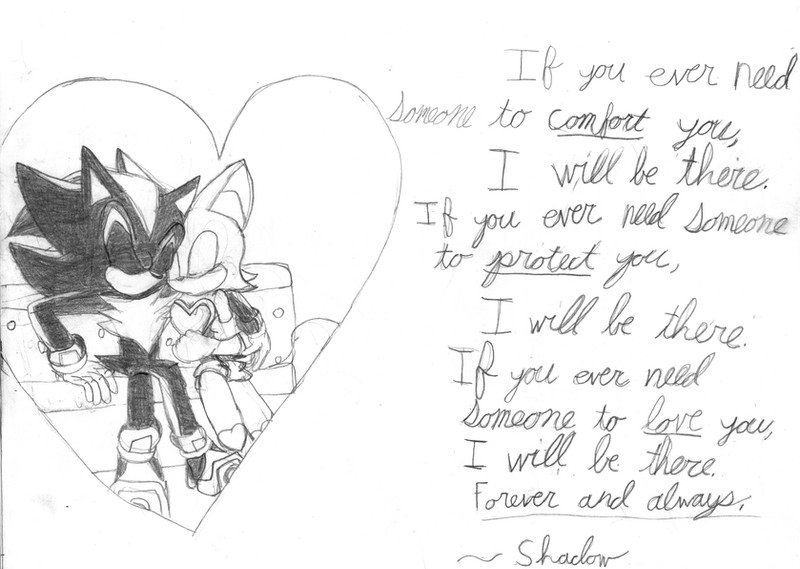 If you ever need
someone to comfort you,
I will be there.
If you ever need someone
to protect you,
I will be there.
If you ever need
someone to love you,
I will be there.
Forever and always.
~ Shadow